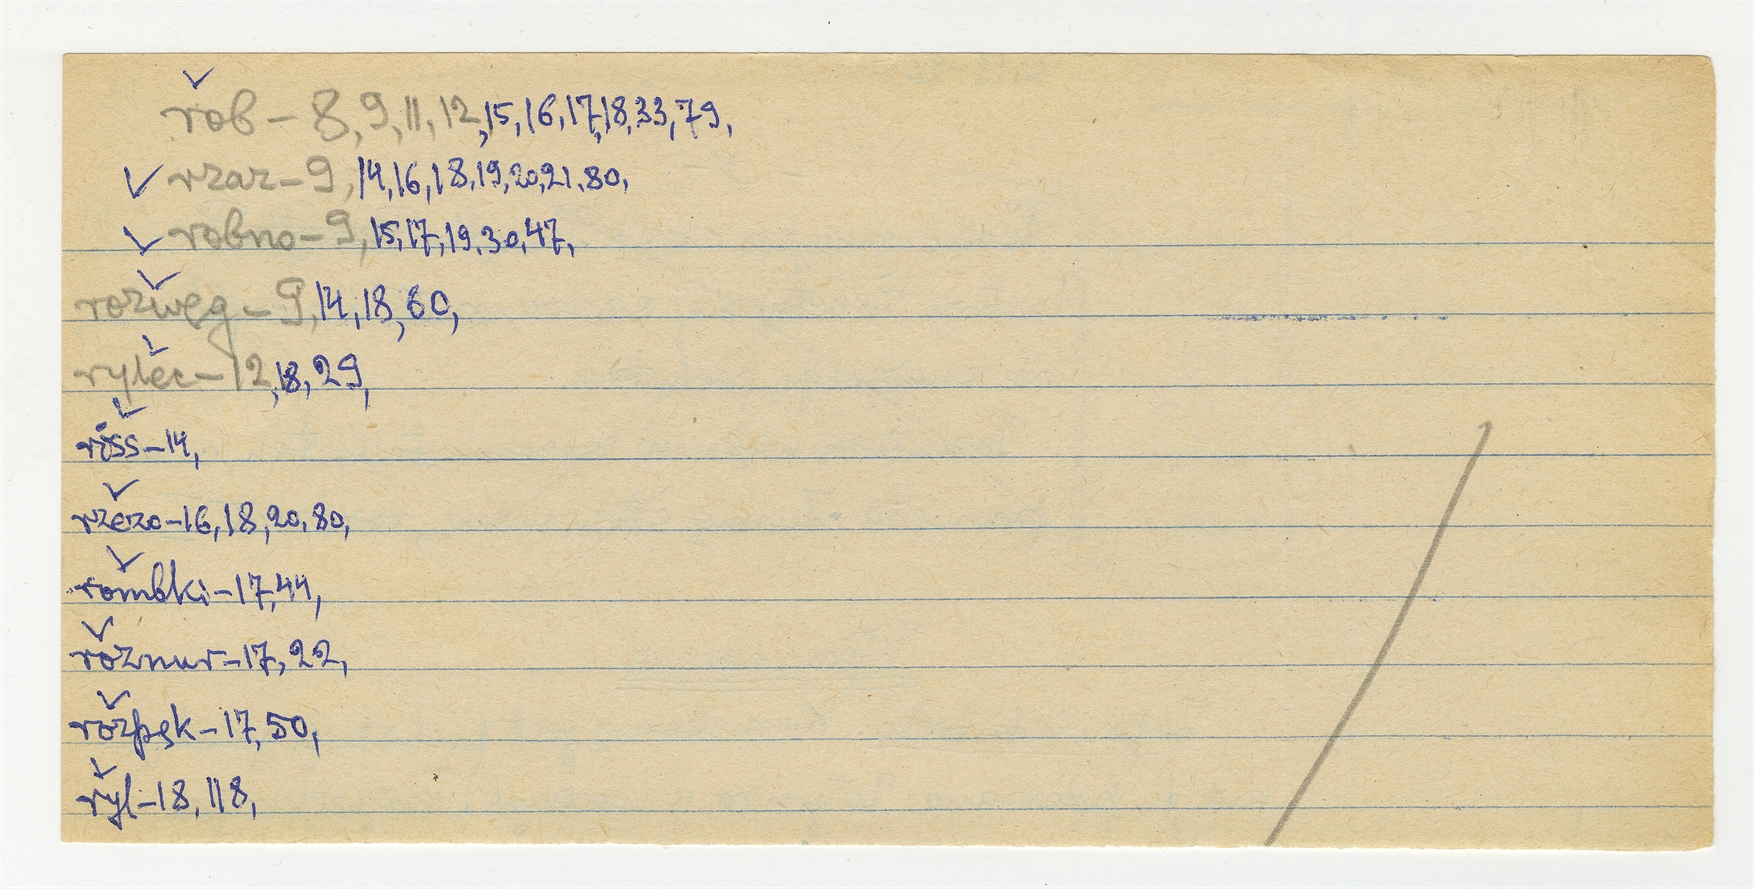 rob – 8, 9, 11, 12, 15, 16, 17, 18, 33, 79,
rzaz – 9, 14, 16, 18, 19, 20, 21, 80,
robno – 9, 15, 17, 19, 30, 47,
rozweg – 9, 14, 18, 60,
rylec – 12, 18, 29,
riss – 14,
rzezo – 16, 18, 20, 80,
rombki – 17, 44,
roznur – 17, 22,
rozpęk – 17, 50,
ryl – 18, 118,